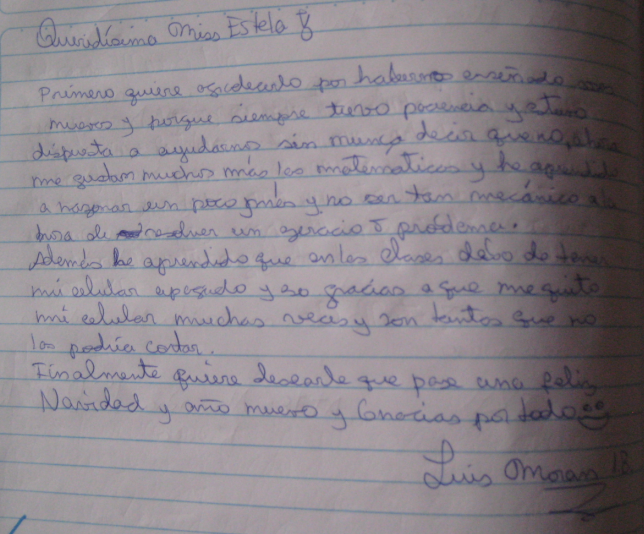 Queridísima Miss Estela
Primero quiere agradecerlo por habernos enseñado cosas
nuevas y porque siempre tuvo paciencia y estuvo
dispuesta a ayudarnos sin nunca decir que no, ahora
me gustan muchos más las matemáticas y he aprendido
a razonar un poco más y no ser tan mecánico a la
hora de resolver un ejercicio o problema.
Además he aprendido que en las clases debo de tener
mi celular apagado y eso gracias a que me quito
mi celular muchas veces y son tantos que no
las podría contar.
Finalmente quiere desearle que pase una feliz
Navidad y año nuevo y Gracias por todo
Luis Moran